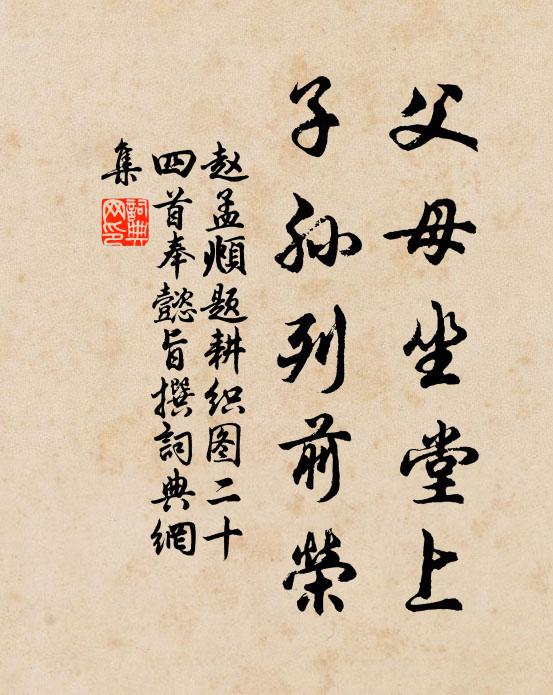 父母坐堂上
子孙列前榮
赵孟頫题耕织图二十
四首奉懿旨撰詞典網
集
詞典
网印